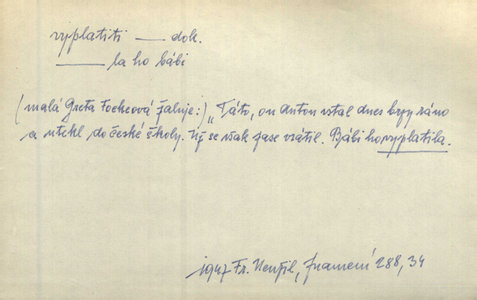 vyplatiti — dok.
— la ho bábi
(malá Greta Fockeová žaluje:) „Táto, on Anton vstal dnes brzy ráno
a utekl do české školy. Už se však zase vrátil. Bábi ho vyplatila.
1947 Fr. Neužil, Znamení 288, 34